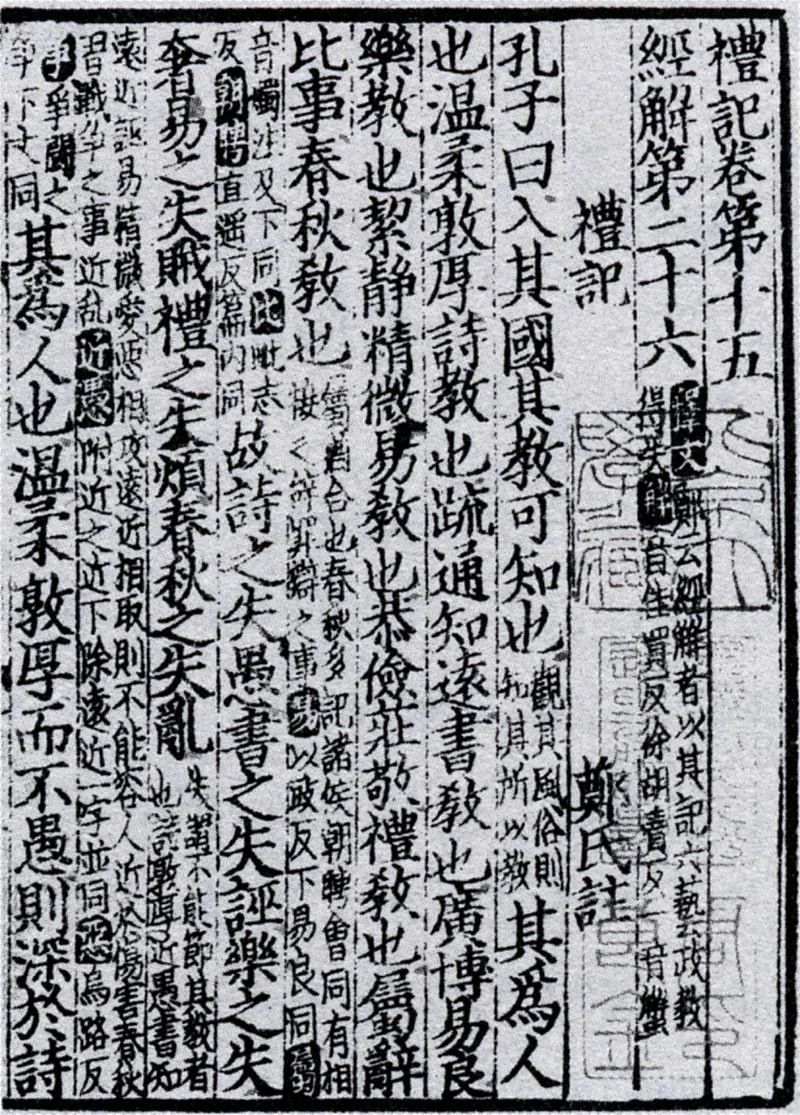 禮記卷第十五
經解第二十六
釋文鄭云經解者以其記六藝政教
得失解音佳買反徐胡賣反一音蟹
禮記 鄭氏註
孔子曰入其國其教可知也
觀其風俗則
知其所以教
其爲人
也温柔敦厚詩教也疏通知遠書教也廣博易良
樂教也絜靜精微易教也恭儉莊敬禮教也屬辭
比事春秋教也
屬猶合也春秋多記諸侯朝聘會同有相
接之辭罪辯之事易以豉反下易良同屬
音燭注及下同比毗志
反朝聘直遥反篇内同
故詩之失愚書之失誣樂之失
奢易之失賊禮之失煩春秋之失亂
失謂不能節其教者
也詩敦厚近愚書知
遠近誣易精微愛惡相攻遠近相取則不能容人近於傷害春秋
習戰爭之事近乱近愚附近之近下除遠近一字並同惡烏路反
爭鬭之
爭下文同
其爲人也温柔敦厚而不愚則深於詩